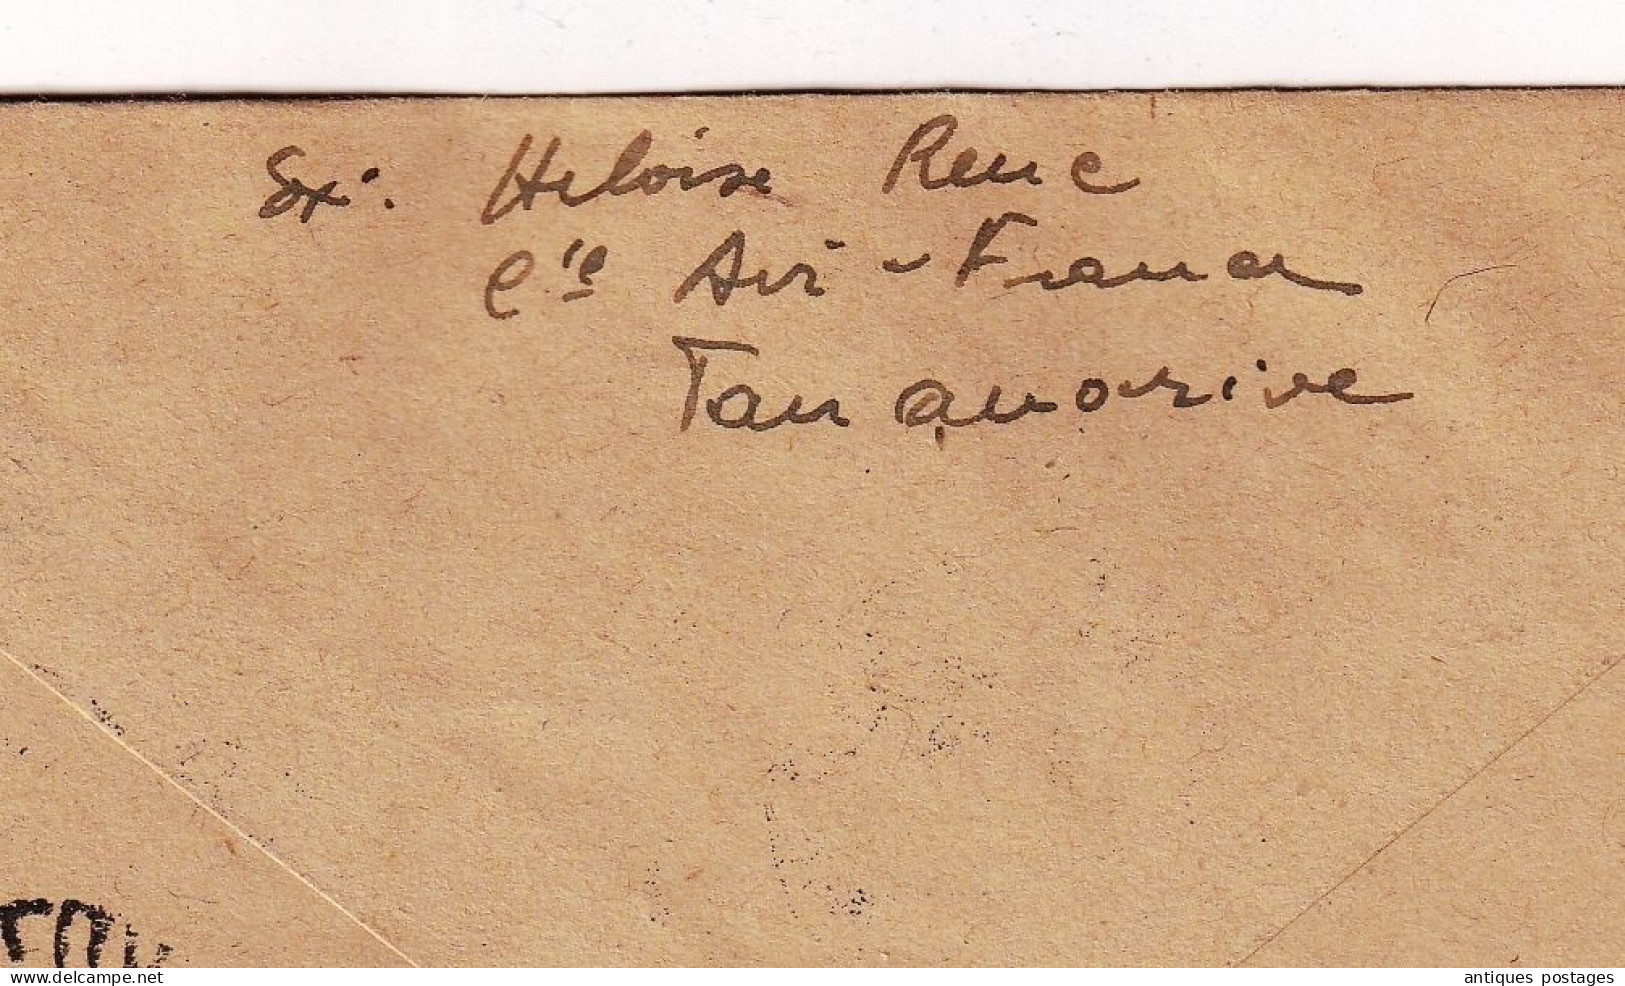 Ex: Heloise Rene
Cie Air - France
Tananarive
www.delcampe.net
antiques postages